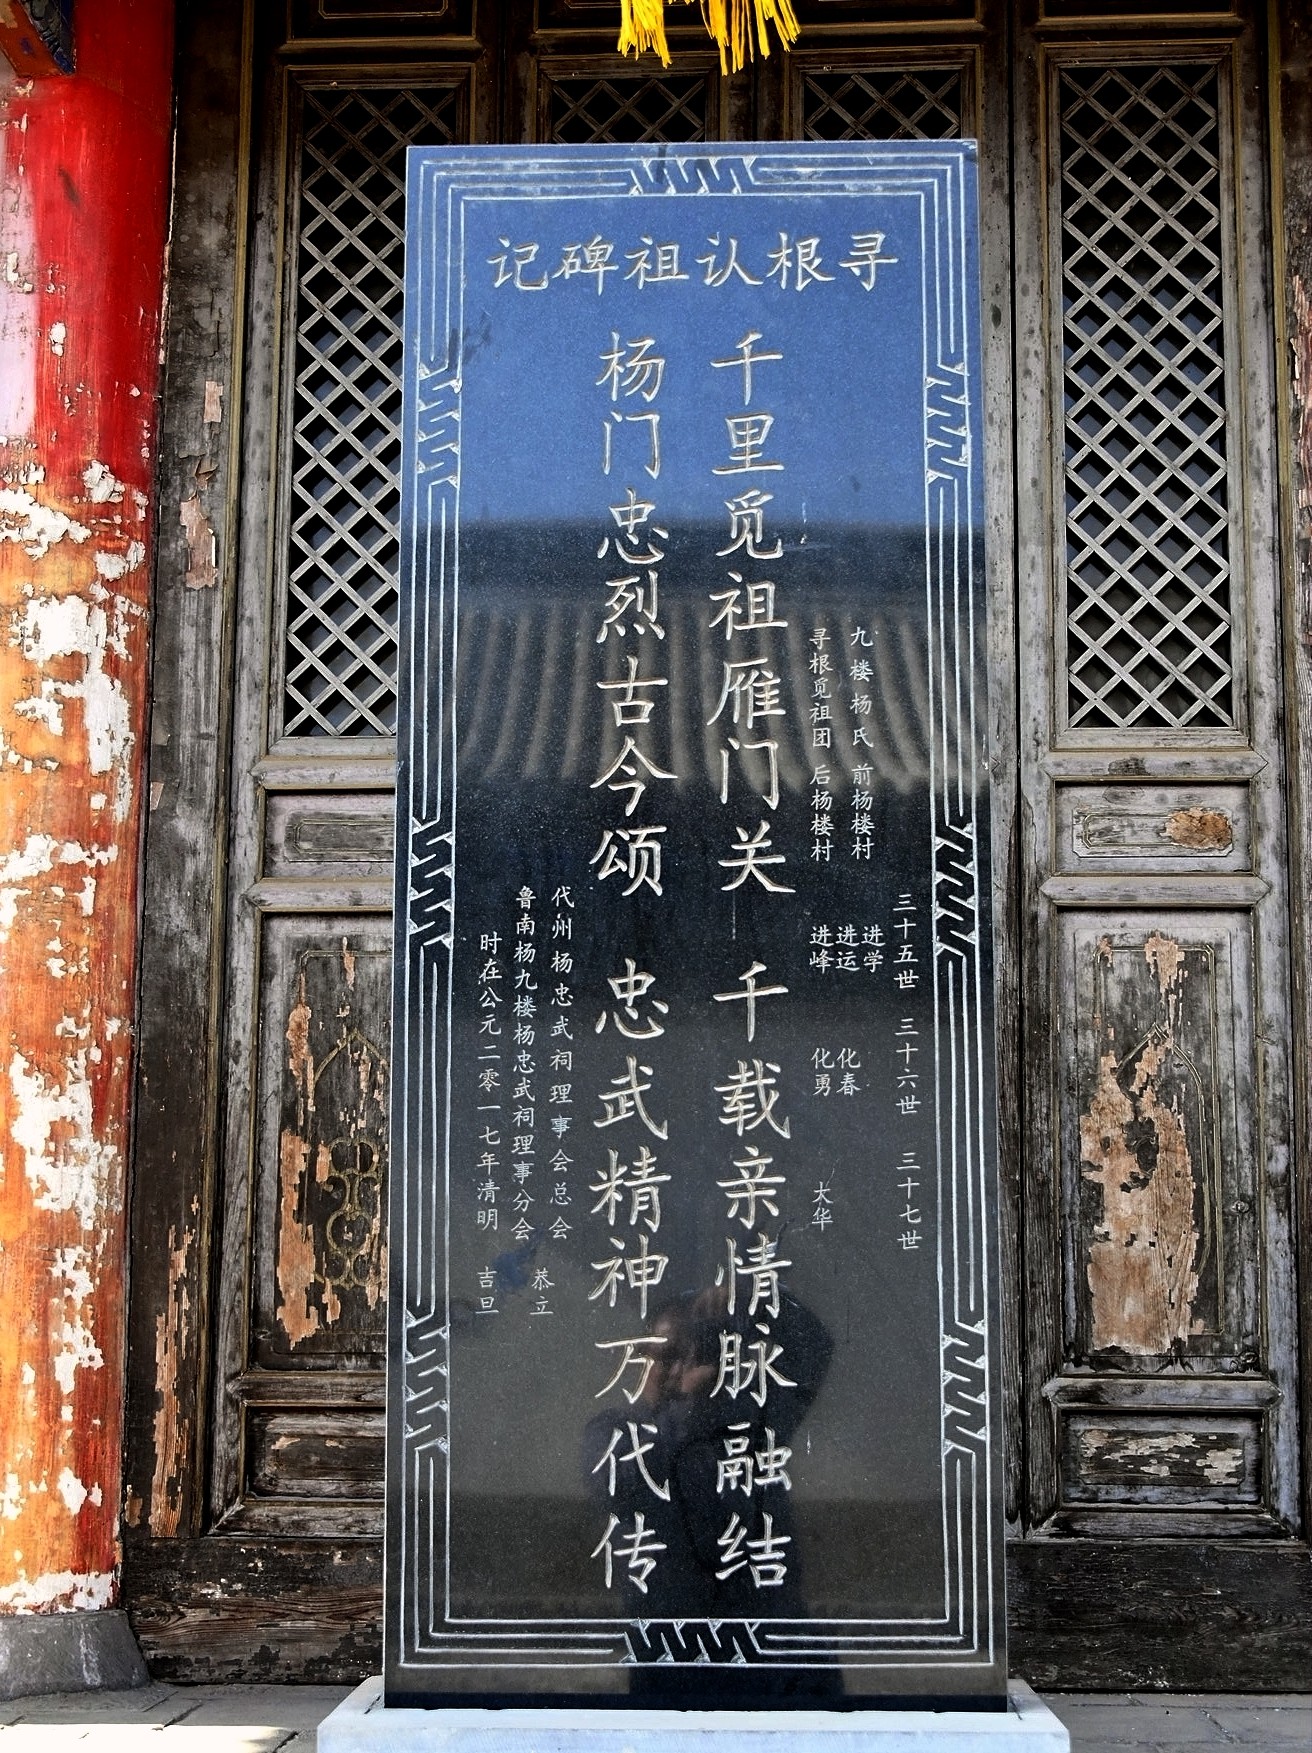 寻根认祖碑记
三十五世 三十六世 三十七世
九楼杨氏 前杨楼村 进学
寻根觅祖团 后杨楼村 进运 化春
进峰 化勇 大华
千里觅祖雁门关 千载亲情脉融结
杨门忠烈古今颂 忠武精神万代传
代州杨忠武祠理事会总会
鲁南杨九楼杨忠武祠理事分会 恭立
时在公元二零一七年清明 吉旦